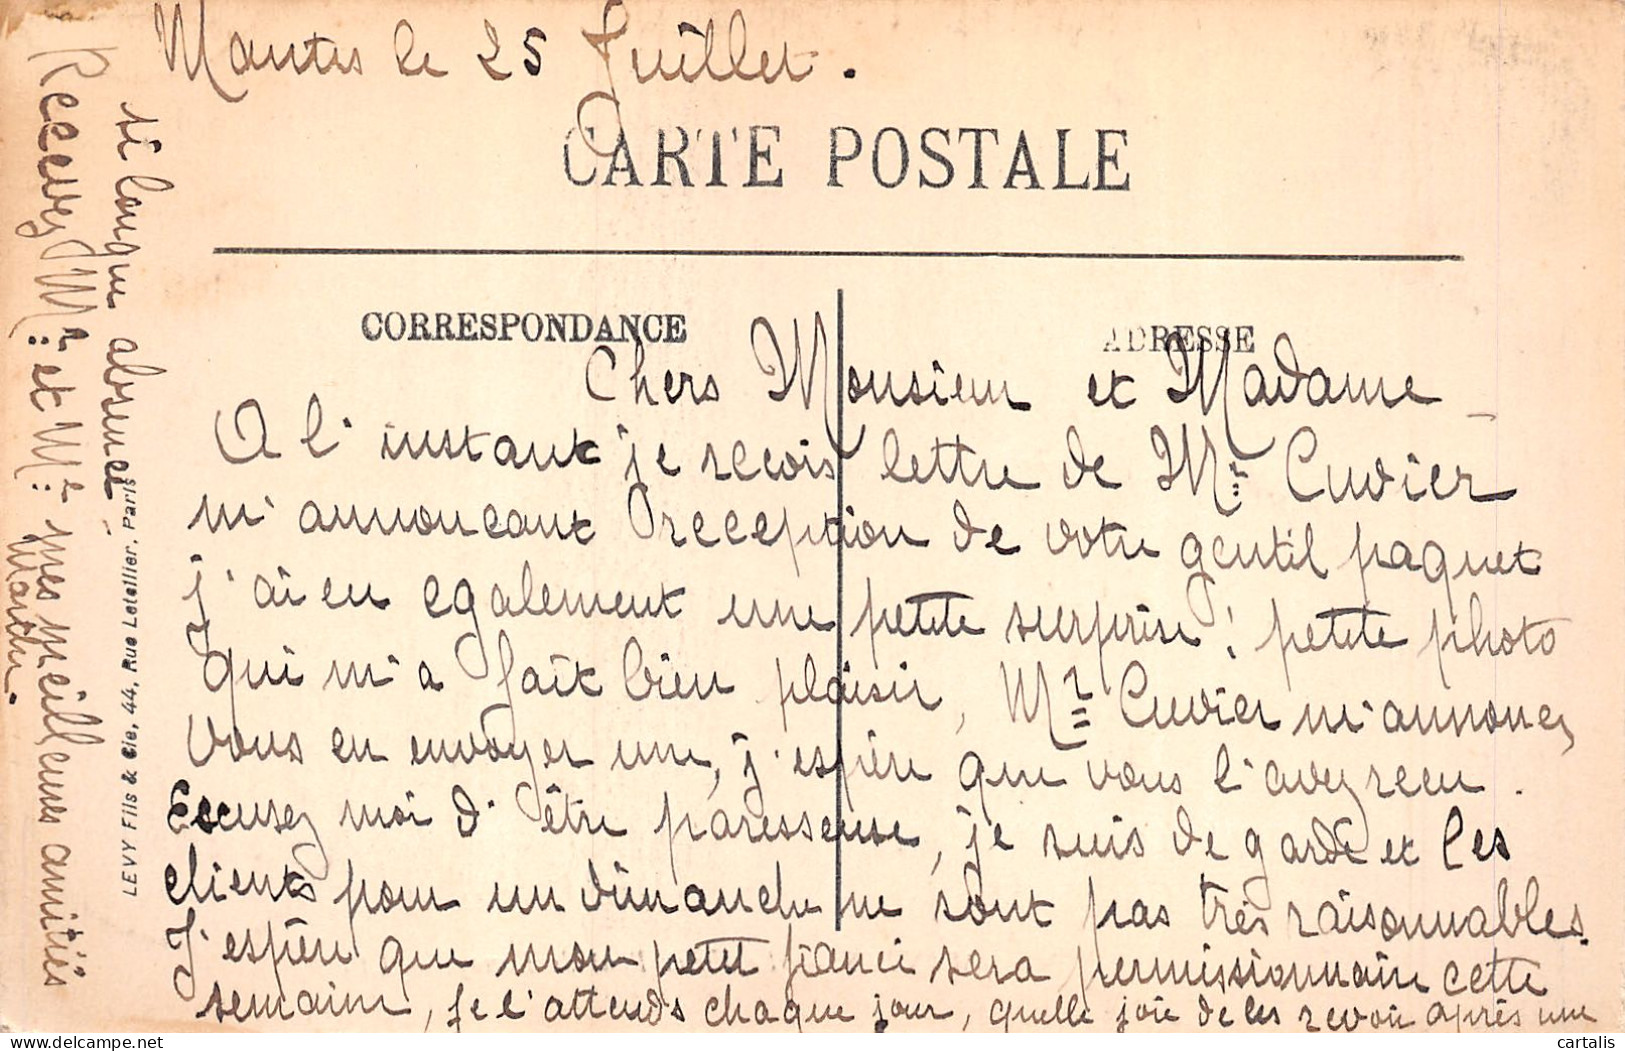 Mantes le 25 Juillet.
CARTE POSTALE
CORRESPONDANCE
ADRESSE
Chers Monsieur et Madame
A l'instant je recois lettre de Mr Cuvier
m'annoncant reception de votre gentil paquet
j'ai eu egalement une petite surprise : petite photo
qui m'a fait bien plaisir, Mr Cuvier m'annonce
vous en envoyer une, j'espère que vous l'avez recu.
Excusez moi d'être paresseuse, je suis de garde et les
clients pour un dimanche ne sont pas très raisonnables.
J'espère que mon petit fiancé sera permissionnaire cette
semaine, je l'attends chaque jour, quelle joie de les revoir après une
si longue absence
Recevez Mr et Me mes meilleures amitiés
LEVY Fils & Cie, 44, Rue Letellier, Paris
cartalis